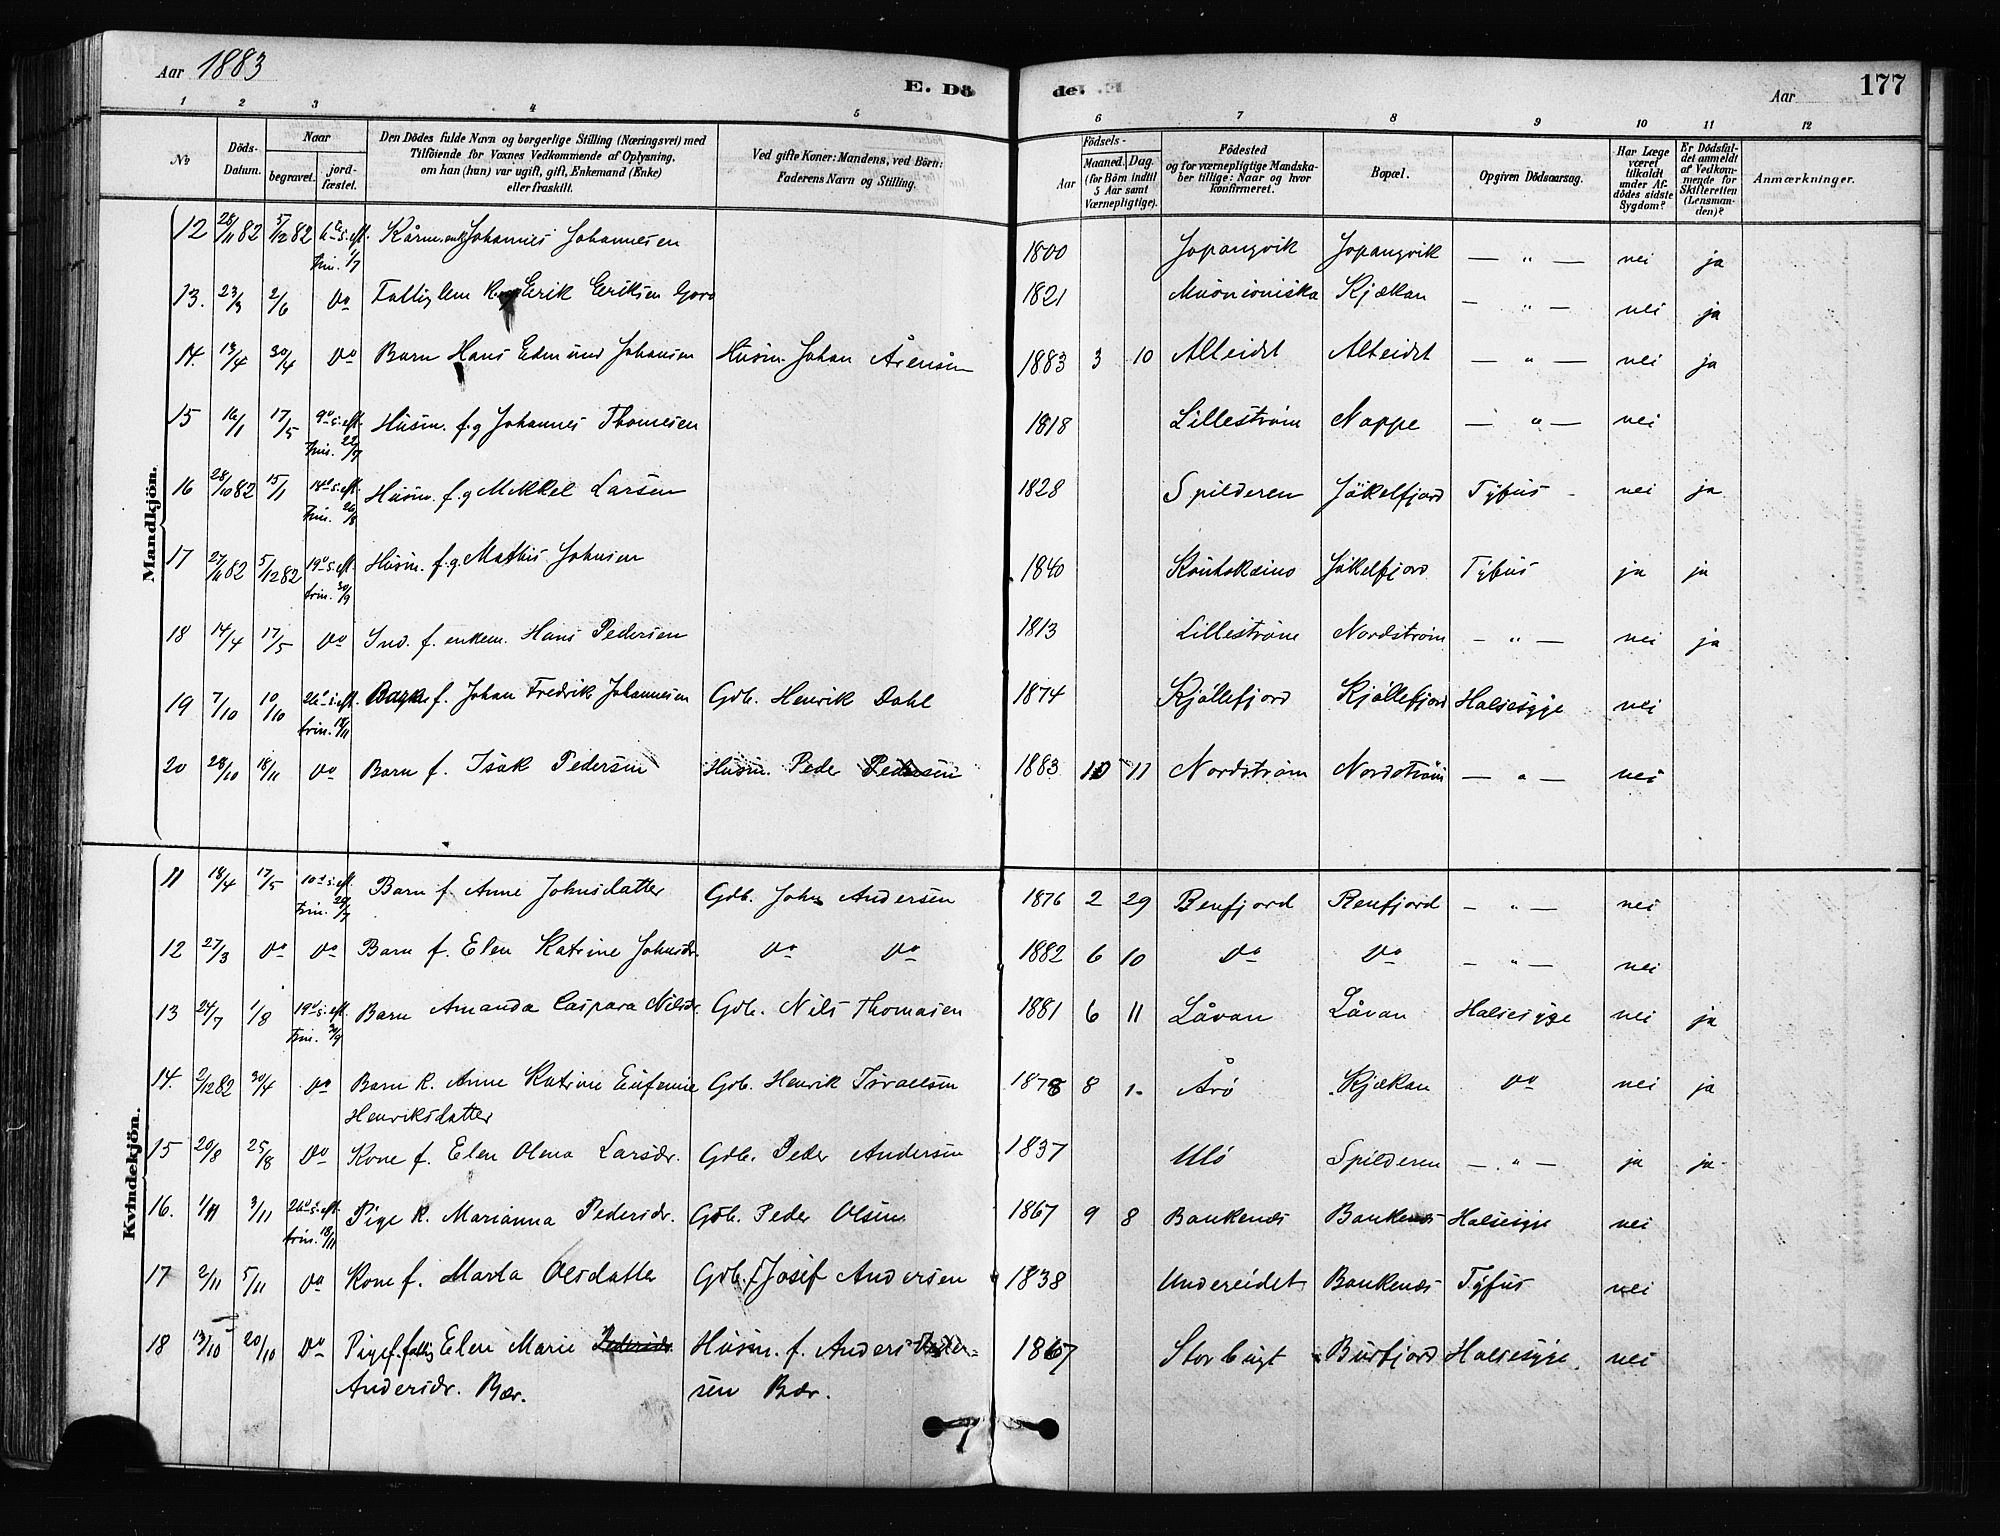 Aar 1883
E. Dö
de. E.
Aar
177
1 2 3 4 5 6 7 8 9 10 11 12
No
Döds-Datum.
Naar
begravet.
jord-fæstet.
Den Dödes fulde Navn og borgerlige Stilling (Næringsvei) med
Tilföiende for Voxnes Vedkommende af Oplysning,
om han (hun) var ugift, gift, Enkemand (Enke)
eller fraskilt.
Ved gifte Koner: Mandens, ved Börn:
Faderens Navn og Stilling.
Födsels-
Aar
Maaned.
Dag.
(for Börn indtil
5 Aar samt
Værnepligtige).
Födested
og for værnepligtige Mandska-
ber tillige: Naar og hvor
konfirmeret.
Bopæl.
Opgiven Dödsaarsag.
Har Læge
været
tilkaldt
under Af-
dödes sidste
Sygdom?
Er Dödsfal-
det anmeldt
af Vedkom-
mende for
Skifteretten
(Lensman-
den)?
Anmærkninger.
Mandkjön.
12 28/11 82 5/12 82 6te s. eft. trin. 1/7 Johannes Johannesen 1800 Jopangvik Jopangvik — " — nei ja
13. 23/3 2/6 do Fattiglem Erik Eriksen 1821 Muonioniska Kjækan — " — nei ja
14. 13/4 30/4 do Barn Hans Edmund Johansen Husm. Johan Årensen 1883 3 10 Alteidet Alteidet — " — nei ja
15 16/1 17/5 9de s. eft. trin. 22/7 Husm. f. g Johannes Thomesen 1818 Lilleström Nappe — " — nei
16 28/10 82 15/1 14de s. eft. trin. 26/8 Husm. f. g Mikkel Larsen 1828 Spilderen Jökelfjord Tyfus nei ja
17 27/11 82 5/12 82 19de s. eft. trin. 30/9 Husm. f. g. Mathis Johnsen 1840 Koutokeino Jökelfjord Tyfus ja ja
18 14/4 17/5 do Ind. f. enkem. Hans Pedersen 1813 Lilleström Nordström — " — nei ja
19 7/10 10/10 26de s. eft. trin. 18/11 Barn f. Johan Fredrik Johannesen Gdb. Henrik Dahl 1874 Kjöllefjord Kjöllefjord Halsesyge nei
20 28/10 18/11 do Barn f. Isak Pedersen Husm. Peder Pedersen 1883 10 11 Nordström Nordström — " — nei
Kvindekjön.
11 18/4 17/5 10de s. eft. trin. 29/7 Barn f. Anne Johnsdatter Gdb. John Andersen 1876 2 29 Benfjord Renfjord — " — nei
12 27/3 do do Barn f. Elen Katrine Johnsdr. do do 1882 6 10 do do — " — nei
13 24/7 1/8 19de s. eft. trin. 30/9 Barn Amanda Caspara Nilsdr. Gdb. Nils Thomasen 1881 6 11 Låvan Låvan Halsesyge nei ja
14. 2/12 82 30/4 do Barn k. Anne Katrine Eufemie Gdb. Henrik Israelsen 1878 8 1. Årö Kjækan do nei ja
Henriksdatter
15 20/8 25/8 do Kone f. Elen Olena Larsdr. Gdb. Peder Andersen 1837 Ulö Spilderen — " — ja ja
16. 1/11 3/11 26de s. eft. trin. 18/11 Pige k. Marianna Pedersdr. Gdb. Peder Olsen 1867 9 8 Baukenæs Baukenæs Halsesyge nei
17 2/11 5/11 do Kone f. Marta Olsdatter Gdb. f Josef Andersen 1838 Undereidet Baukenæs Tyfus nei
18 13/10 20/10 do Pige f. fattig Elen Marie Pedersdr. Husm. f. Anders Ander= 1867 Storbugt Burfjord Halsesyge. nei
Andersdr. Bær. sen Bær.